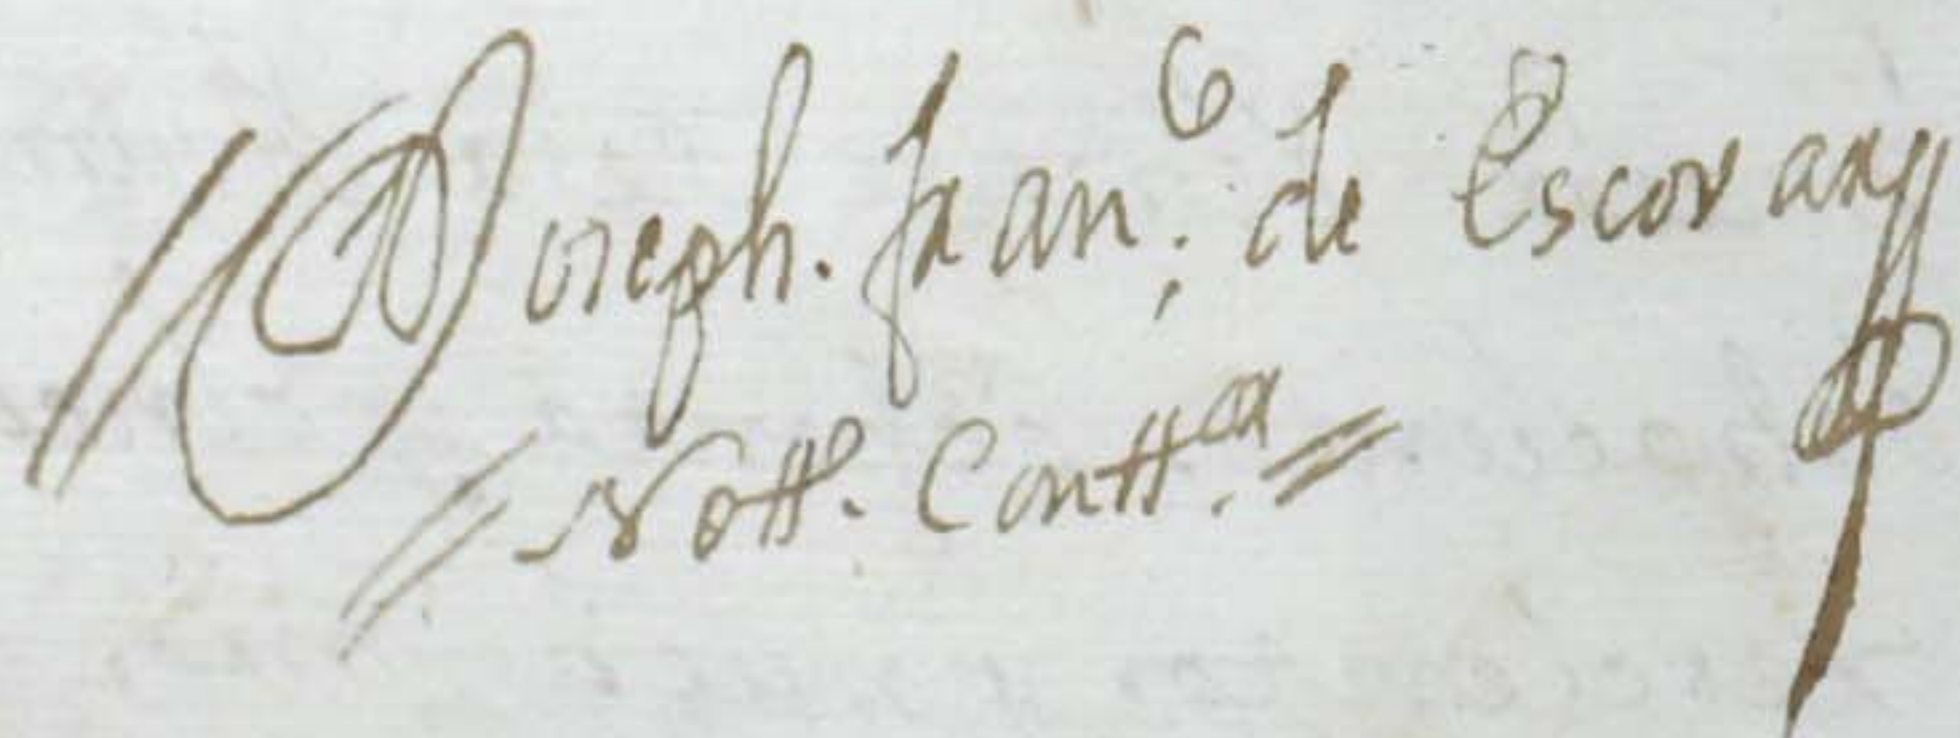 Joseph. Fran.co de Escovar
Nott.o Contt.or